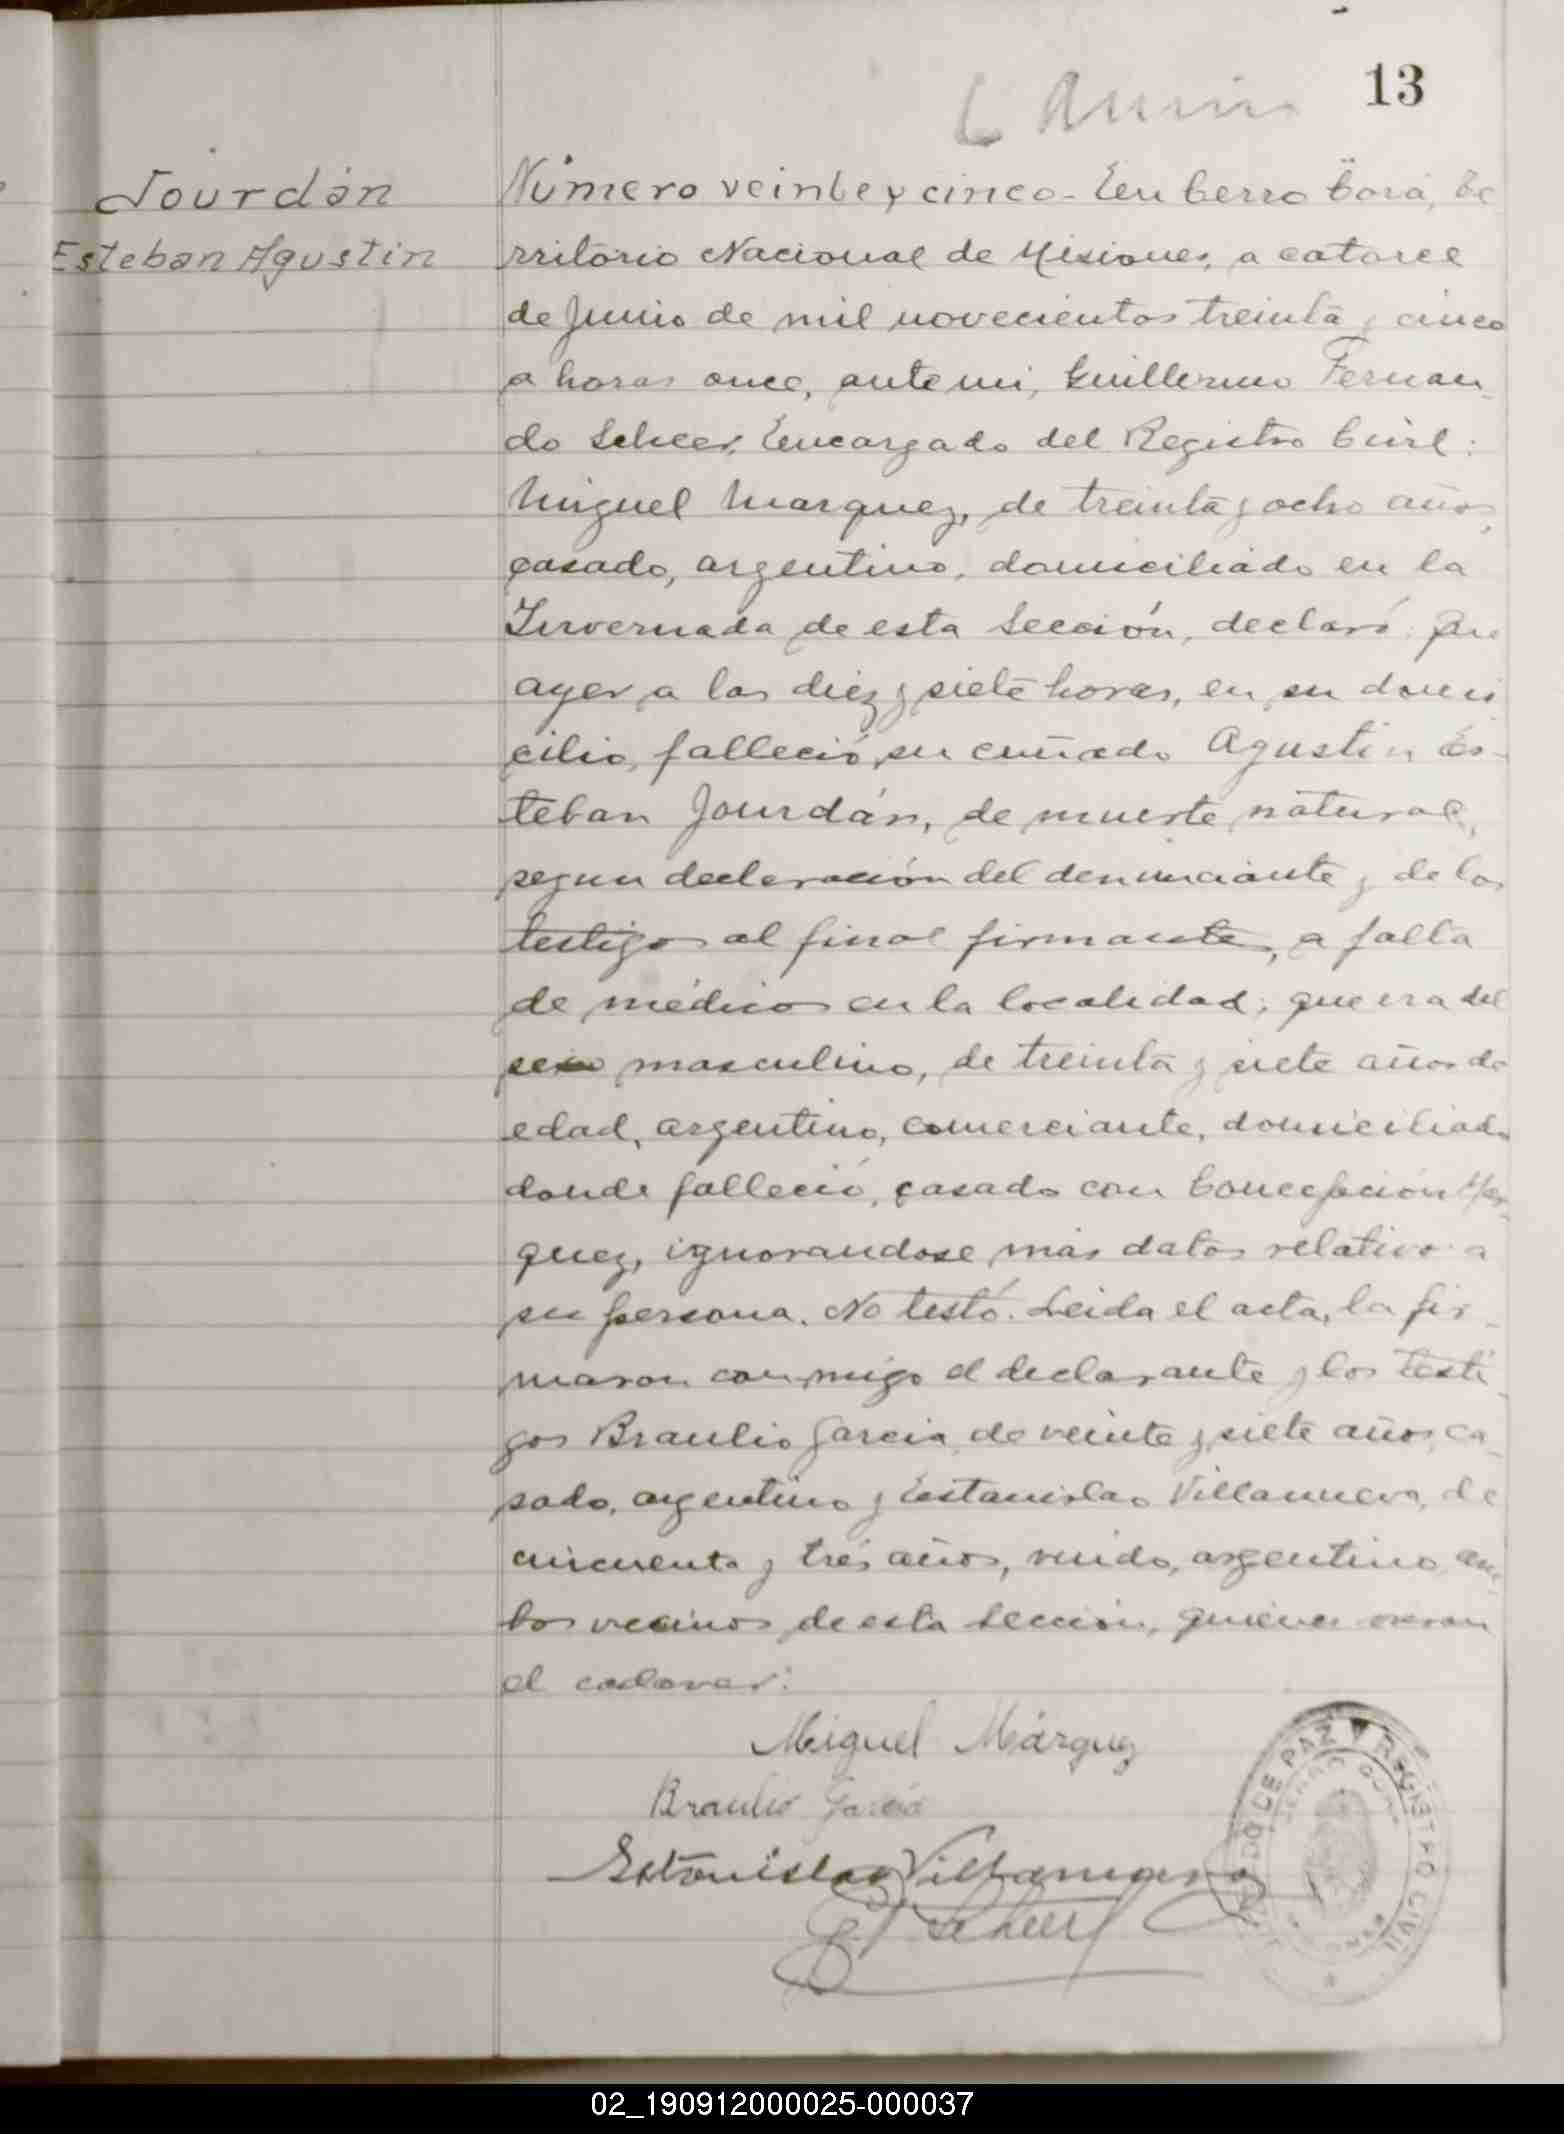 13
Jourdán
Esteban Agustin
Número veinte y cinco - En Cerro Corá, Te
rritorio Nacional de Misiones, a catorce
de Junio de mil novecientos treinta y cinco
a horas once, ante mi, Guillermo Fernan-
do Scheer, Encargado del Registro Civil:
Miguel Marquez, de treinta y ocho años,
casado, argentino, domiciliado en la
Invernada de esta Sección, declaró: Que
ayer a las diez y siete horas, en su domi
cilio, falleció su cuñado Agustin Es-
teban Jourdán, de muerte natural,
segun declaración del denunciante y de los
testigos al final firmante, a falta
de médicos en la localidad; que era del
sexo masculino, de treinta y siete años de
edad, argentino, comerciante, domiciliado
donde falleció, casado con Concepción Mar-
quez, ignorandose más datos relativo a
su persona. No testó. Leida el acta, la fir-
maron conmigo el declarante y los testi-
gos Braulio Garcia, de veinte y siete años, ca-
sado, argentino y Estanislao Villanueva, de
cincuenta y tres años, viudo, argentino, am-
bos vecinos de esta Sección, quienes vieron
el cadaver:
Miguel Márquez
Braulio Garcia
Estanislao Villanueva
G. F. Scheer
JUZGADO DE PAZ Y REGISTRO CIVIL
CERRO CORA
02_190912000025-000037